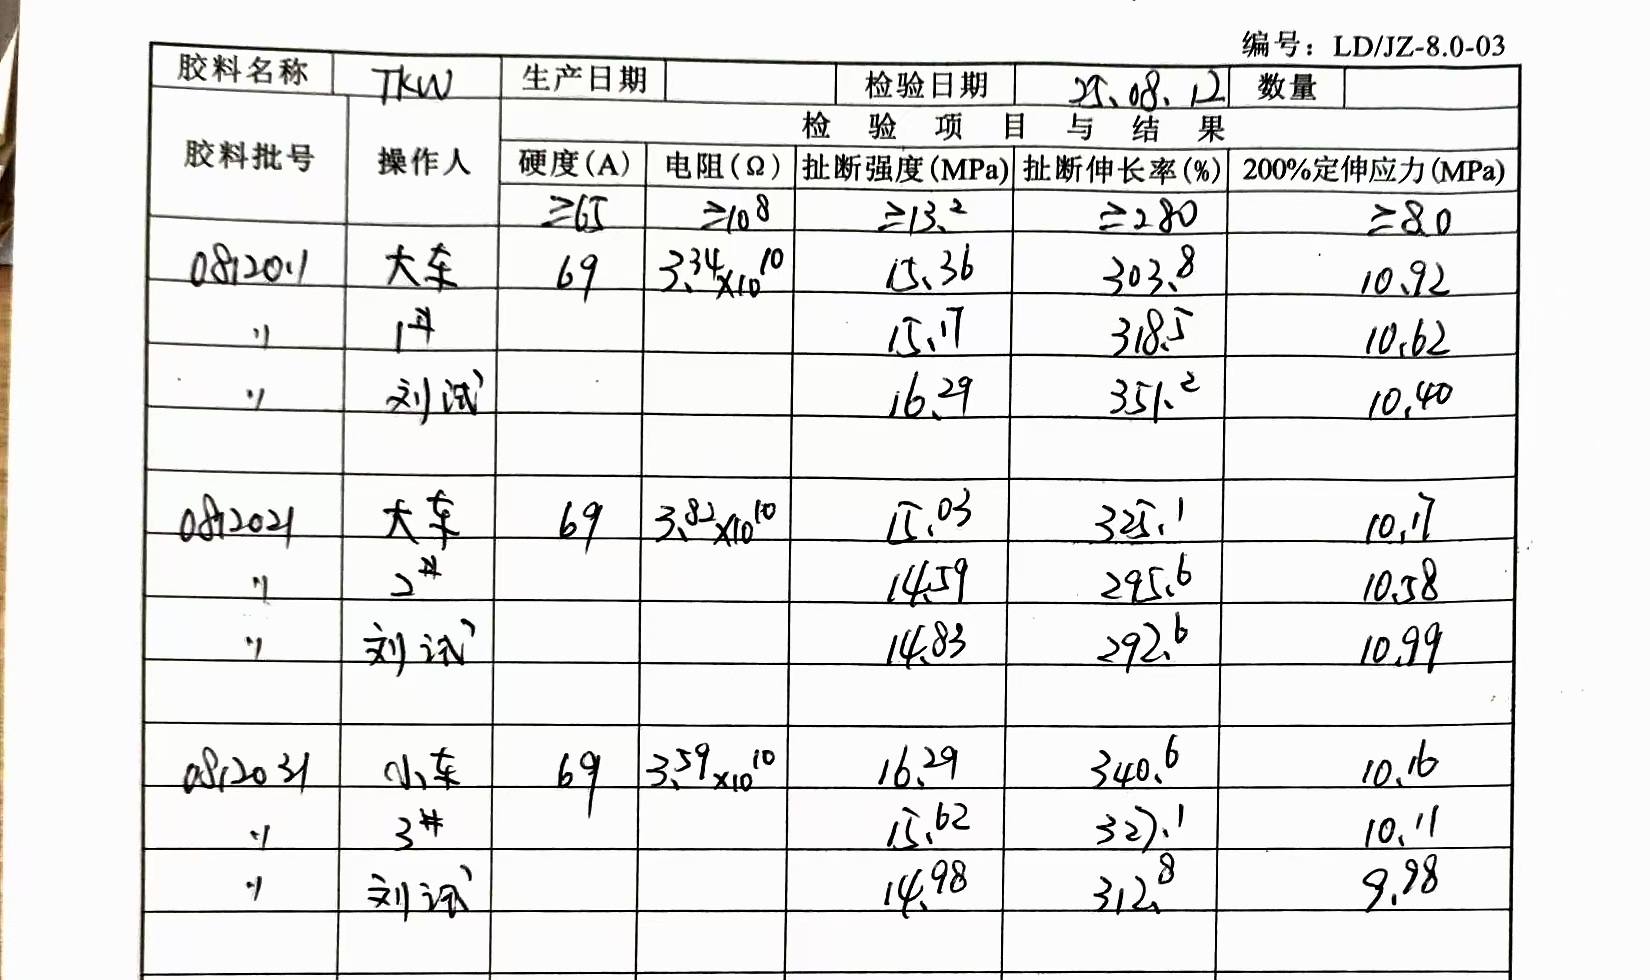 编号：LD/JZ-8.0-03
胶料名称 TKW 生产日期 检验日期 25.08.12 数量
检验项目与结果
胶料批号 操作人 硬度(A) 电阻(Ω) 扯断强度(MPa) 扯断伸长率(%) 200%定伸应力(MPa)
≥65 ≥10⁸ ≥13.2 ≥280 ≥8.0
0812011 大车 69 3.34×10¹⁰ 15.36 303.8 10.92
〃 1# 15.17 318.5 10.62
〃 刘试 16.29 351.2 10.40
0812021 大车 69 3.82×10¹⁰ 15.03 325.1 10.17
〃 2# 14.59 295.6 10.58
〃 刘试 14.83 292.6 10.99
0812031 小车 69 3.59×10¹⁰ 16.29 340.6 10.16
〃 3# 15.62 327.1 10.11
〃 刘试 14.98 312.8 9.98